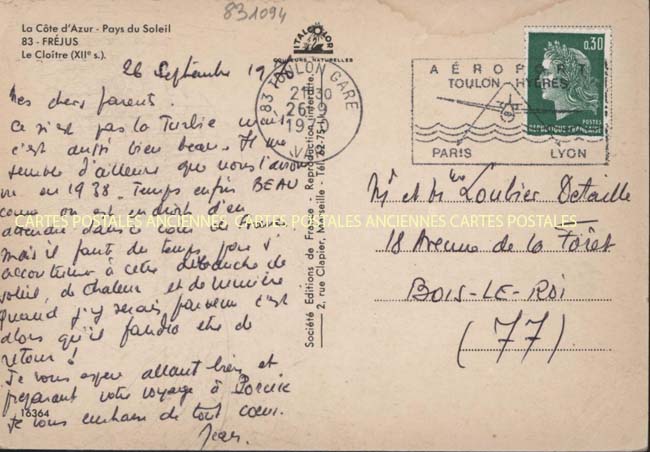 831094
La Côte d'Azur - Pays du Soleil
83 - FRÉJUS
Le Cloître (XIIe s.).
ITALCOLOR
COULEURS NATURELLES
26 Septembre 19
83 TOULON GARE
21H30
26-9
19
VAR
AÉROPORT
TOULON-HYÈRES
PARIS LYON
0,30
POSTES
REPUBLIQUE FRANÇAISE
Mes chers parents.
Ce n'est pas la Turbie mais
c'est aussi bien beau. Il me
semble d'ailleurs que nous l'avions
vu en 1938. Temps enfin BEAU
comme on est en droit d'en
attendre dans ce coin de France.
mais il faut du temps pour s'
accoutumer à cette débauche de
soleil, de chaleur et de lumière
Quand j'y serai parvenu c'est
alors qu'il faudra être de
retour !
Je vous espère allant bien et
préparant votre voyage à
Je vous embrasse de tout coeur.
Jean.
16364
Société Editions de France - Reproduction interdite.
2, rue Clapier, Marseille - Tél. 62-15
Mr et Me Loubier Detaille
18 Avenue de la Forêt
BOIS-LE-ROI
(77)
CARTES POSTALES ANCIENNES CARTES POSTALES ANCIENNES CARTES POSTALES